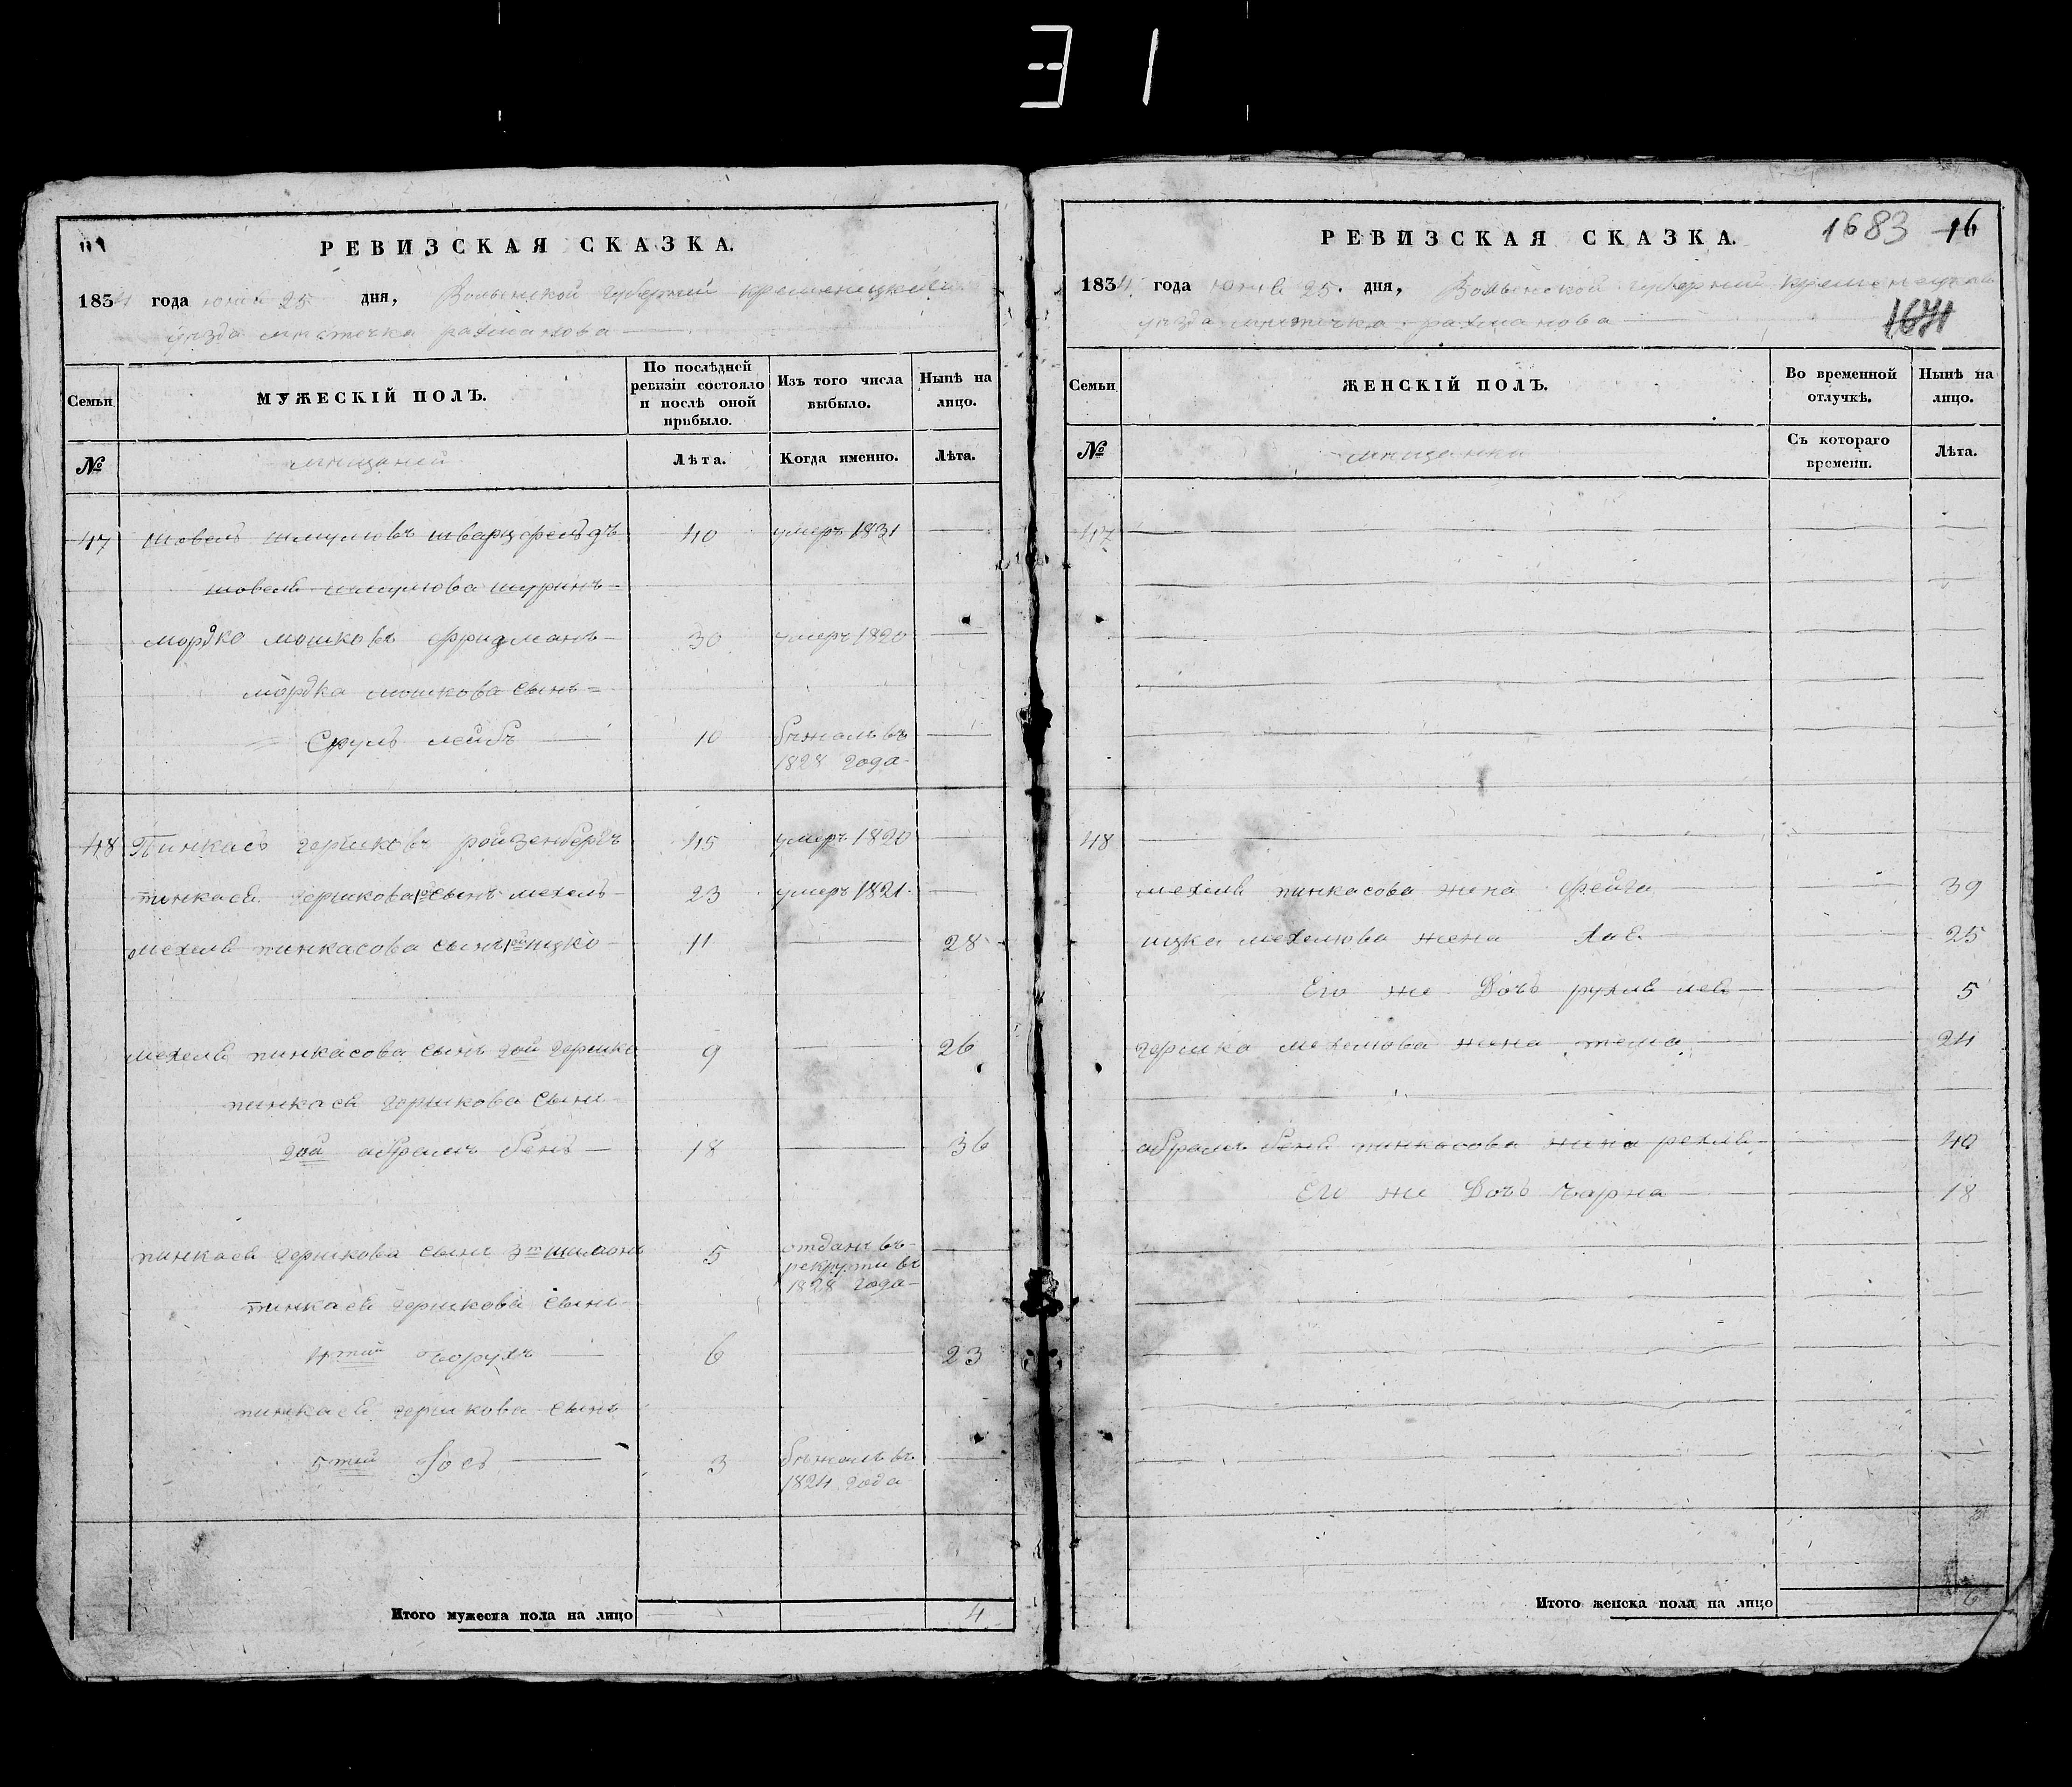 31
РЕВИЗСКАЯ СКАЗКА.
1834 года июня 25 дня, Волынской губернии кременецкаго
уезда местечка рахманова
Семьи
МУЖЕСКІЙ ПОЛЪ.
По послѣдней ревизіи состояло и послѣ оной прибыло.
Изъ того числа выбыло.
Нынѣ на лицо.
№
мещаней
Лѣта.
Когда именно.
Лѣта.
47 шовель шмулювъ шварцфельдъ 40 умеръ 1831
шовеля шмулюва шуринъ
мордко мошковъ фридманъ 30 умеръ 1820
мордка мошкова сынъ
Сруль лейбъ 10 бежалъ въ
1828 года
48 Пинкасъ гершковъ ройзенбергъ 45 умеръ 1820
пинкаса гершкова 1й сынъ мехель 23 умеръ 1821
мехеля пинкасова сынъ 1й ицко 11 28
мехеля пинкасова сынъ 2ой гершко 9 26
пинкаса гершкова сынъ
2ой абрамъ бень 18 36
пинкаса гершкова сынъ 3й шимонъ 5 отданъ въ
рекруты въ
1828 года
пинкаса гершкова сынъ
4тий борухъ 6 23
пинкаса гершкова сынъ
5тий Іось 3 бежалъ въ
1824 года
Итого мужеска пола на лицо 4
РЕВИЗСКАЯ СКАЗКА. 1683 16
1834 года июня 25 дня, Волынской губернии кременецкаго
уезда местечка рахманова
1671
Семьи
ЖЕНСКІЙ ПОЛЪ.
Во временной отлучкѣ.
Нынѣ на лицо.
№
мещанки
Съ котораго времени.
Лѣта.
47
48
мехеля пинкасова жена фейга 39
ицка мехелюва жена хая 25
Его же Дочь рухля лея 5
гершка мехелюва жена тема 24
абрамъ беня пинкасова жена рехля 40
Его же Дочь чарна 18
Итого женска пола на лицо 6